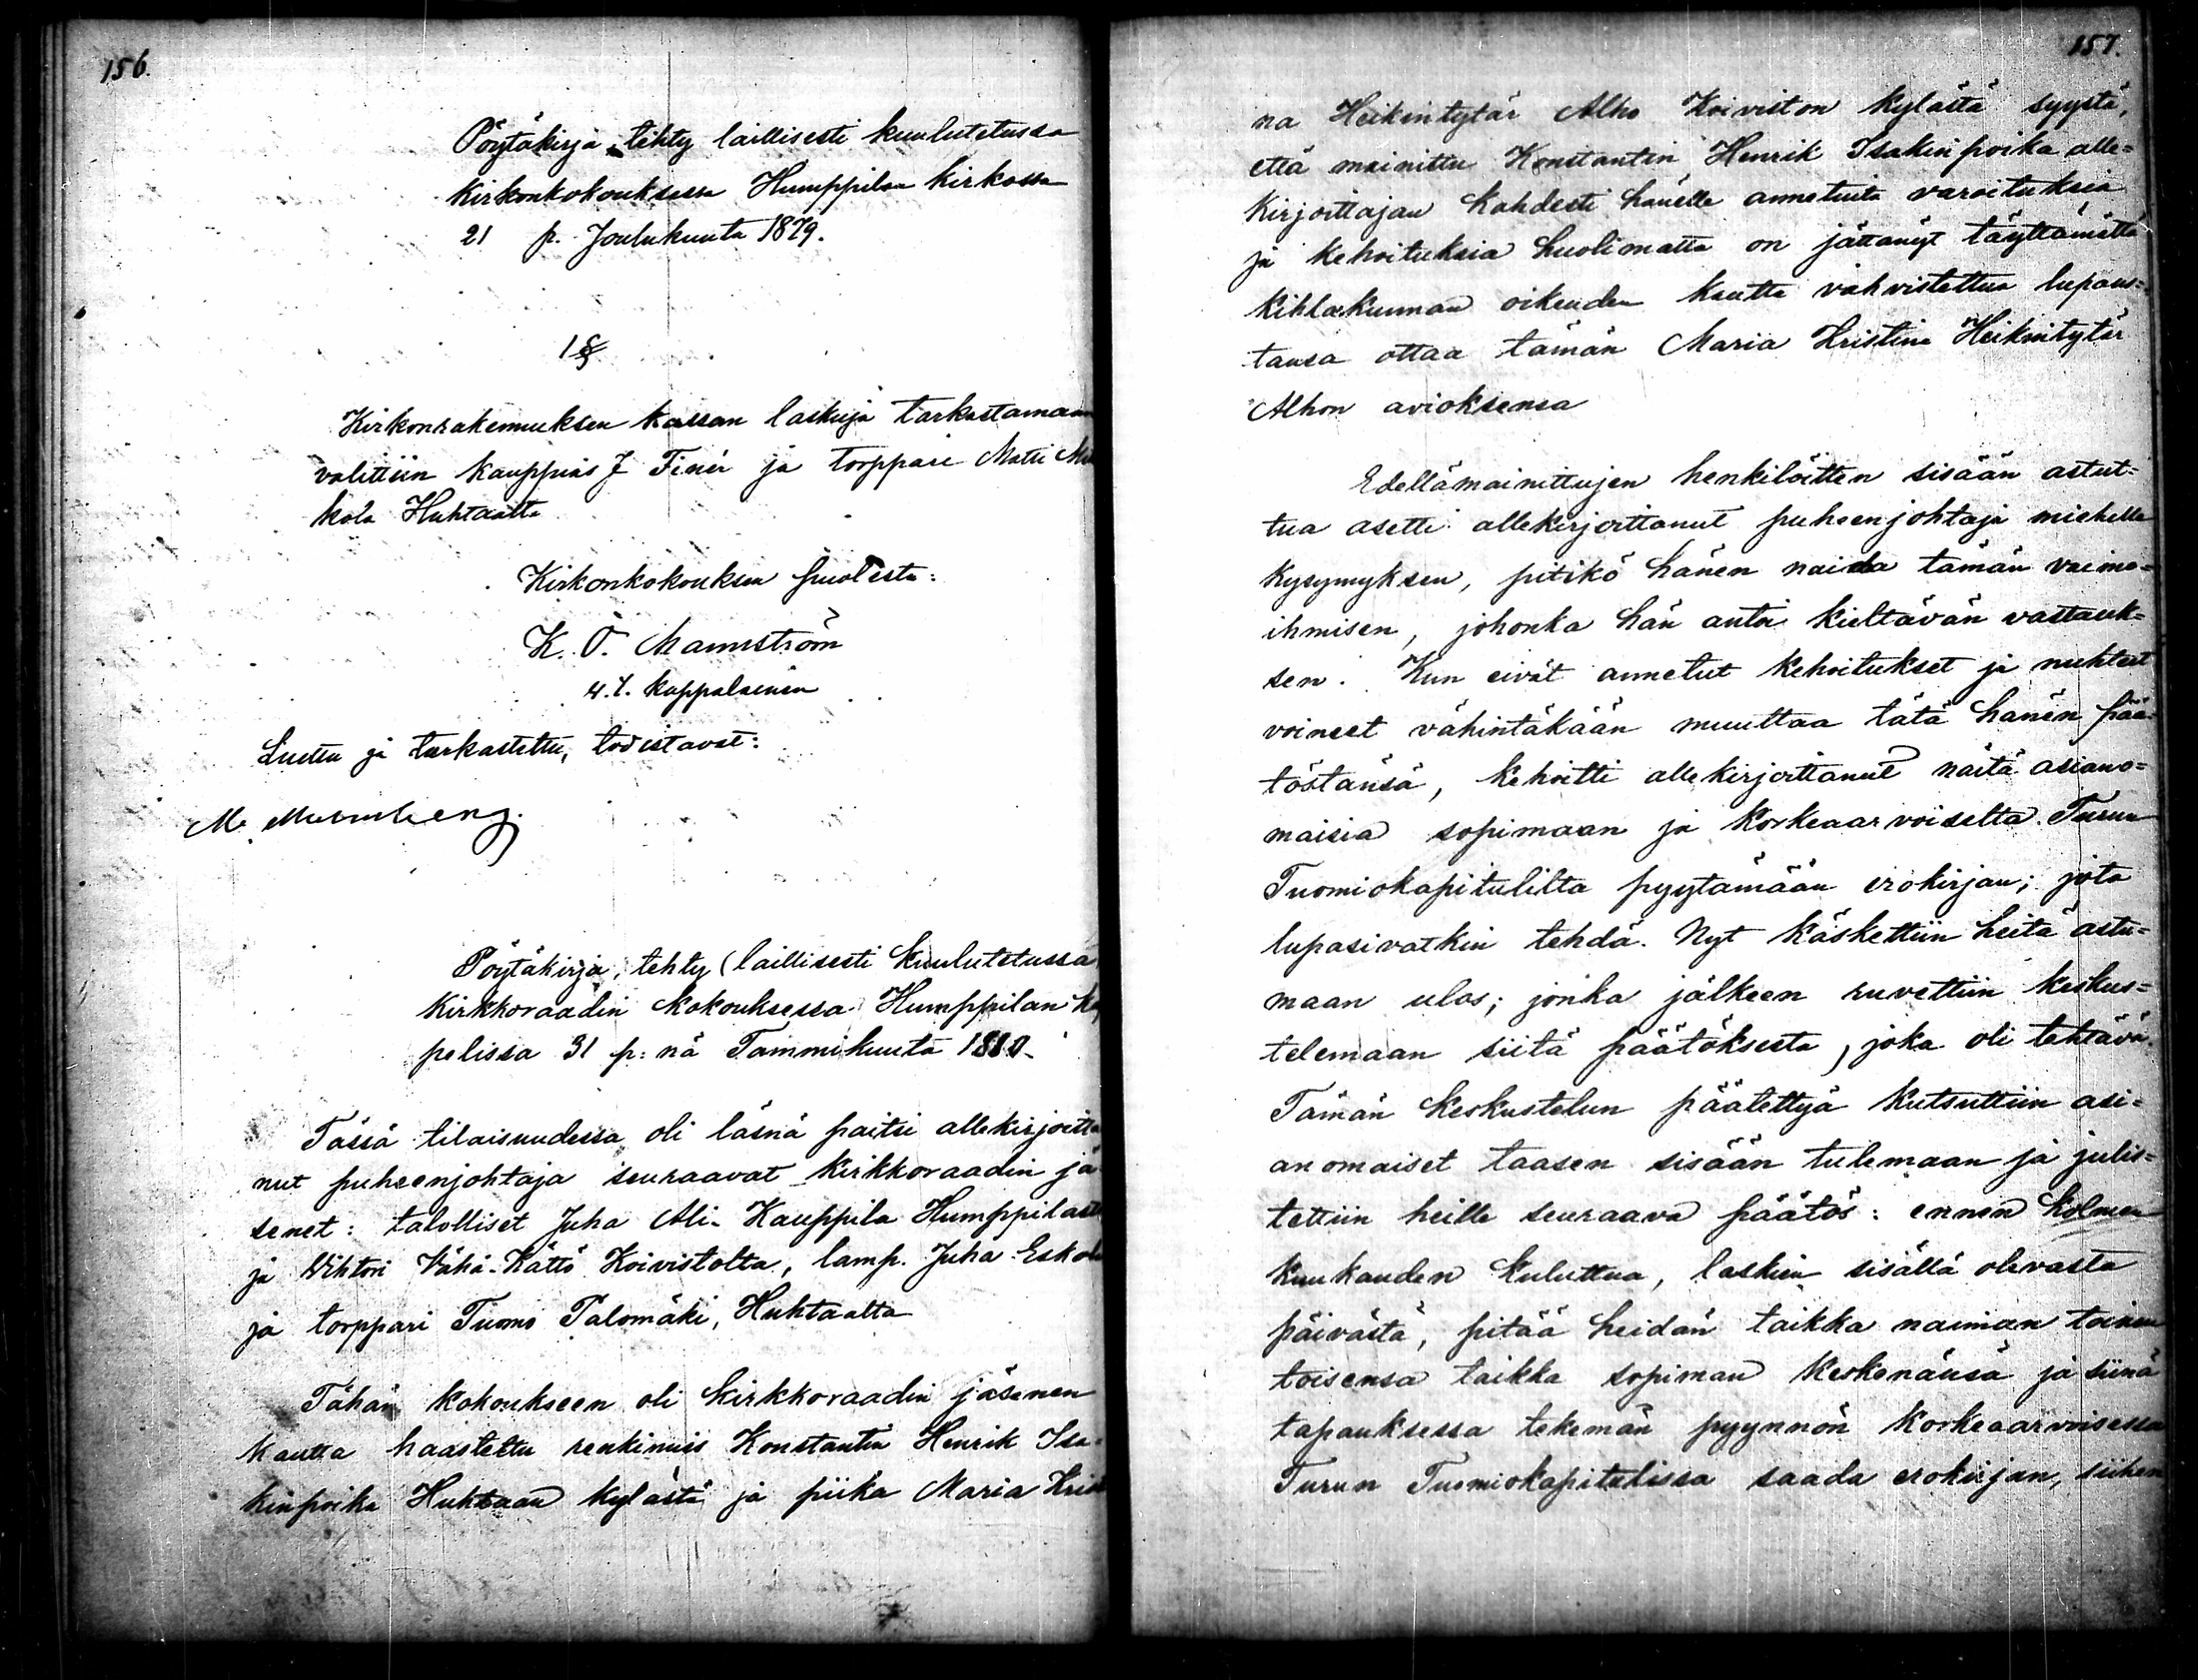 156.
Pöytäkirja, tehty laillisesti kuulutetussa
Kirkonkokouksessa Humppilan kirkossa
21 p. Joulukuuta 1879.
1 §
Kirkonrakennuksen kassan laskuja tarkastamaan
valittiin kauppias J Finér ja torppari Matti
kola Huhtaalta
Kirkonkokouksen puolesta:
K. O. Mannström
v.t. kappalainen
Luettu ja tarkastettu, todistavat:
M. Murmberg.
Pöytäkirja, tehty (laillisesti kuulutetussa
Kirkkoraadin kokouksessa Humppilan ka
pelissa 31 p:nä Tammikuuta 1880.
Tässä tilaisuudessa oli läsnä paitsi allekirjoitta
nut puheenjohtaja seuraavat kirkkoraadin jä
senet: talolliset Juha Ali-Kauppila Humppilasta
ja Wihtori Vähä-Kättö Koivistolta, lamp. Juha Eskola
ja torppari Tuomo Palomäki, Huhtaalta
Tähän kokoukseen oli kirkkoraadin jäsenen
kautta haastettu renkimies Konstantin Henrik Isa-
kinpoika Huhtaan kylästä ja piika Maria Kristi
157.
na Heikintytär Alho Koiviston kylästä syystä,
että mainittu Konstantin Henrik Isakinpoika alle=
kirjoittajan kahdesti hänelle annetuita varoituksia
ja kehoituksia huolimatta on jättänyt täyttämättä
kihlakunnan oikeuden kautta vahvistettua lupaus=
tansa ottaa tämän Maria Kristina Heikintytär
Alhon avioksensa
Edellämainittujen henkilöitten sisään astut=
tua asetti allekirjoittanut puheenjohtaja miehelle
kysymyksen, pitikö hänen naida tämän vaimo=
ihmisen, johonka hän antoi kieltävän vastauk=
sen. Kun eivät annetut kehoitukset ja nuhteet
voineet vähintäkään muuttaa tätä hänen pää-
töstänsä, kehoitti allekirjoittanut näitä asiano=
maisia sopimaan ja korkeaarvoiselta Turun
Tuomiokapitulilta pyytämään erokirjan; jota
lupasivatkin tehdä. Nyt käskettiin heitä astu=
maan ulos; jonka jälkeen ruvettiin keskus=
telemaan siitä päätöksestä, joka oli tehtävä.
Tämän keskustelun päätettyä kutsuttiin asi=
anomaiset taasen sisään tulemaan ja julis=
tettiin heille seuraava päätös: ennen kolmen
kuukauden kuluttua, laskien sisällä olevasta
päivästä, pitää heidän taikka naiman toinen
toisensa taikka sopiman keskenänsä ja siinä
tapauksessa tekemän pyynnön korkeaarvoisessa
Turun Tuomiokapitulissa saada erokirjan, siihen